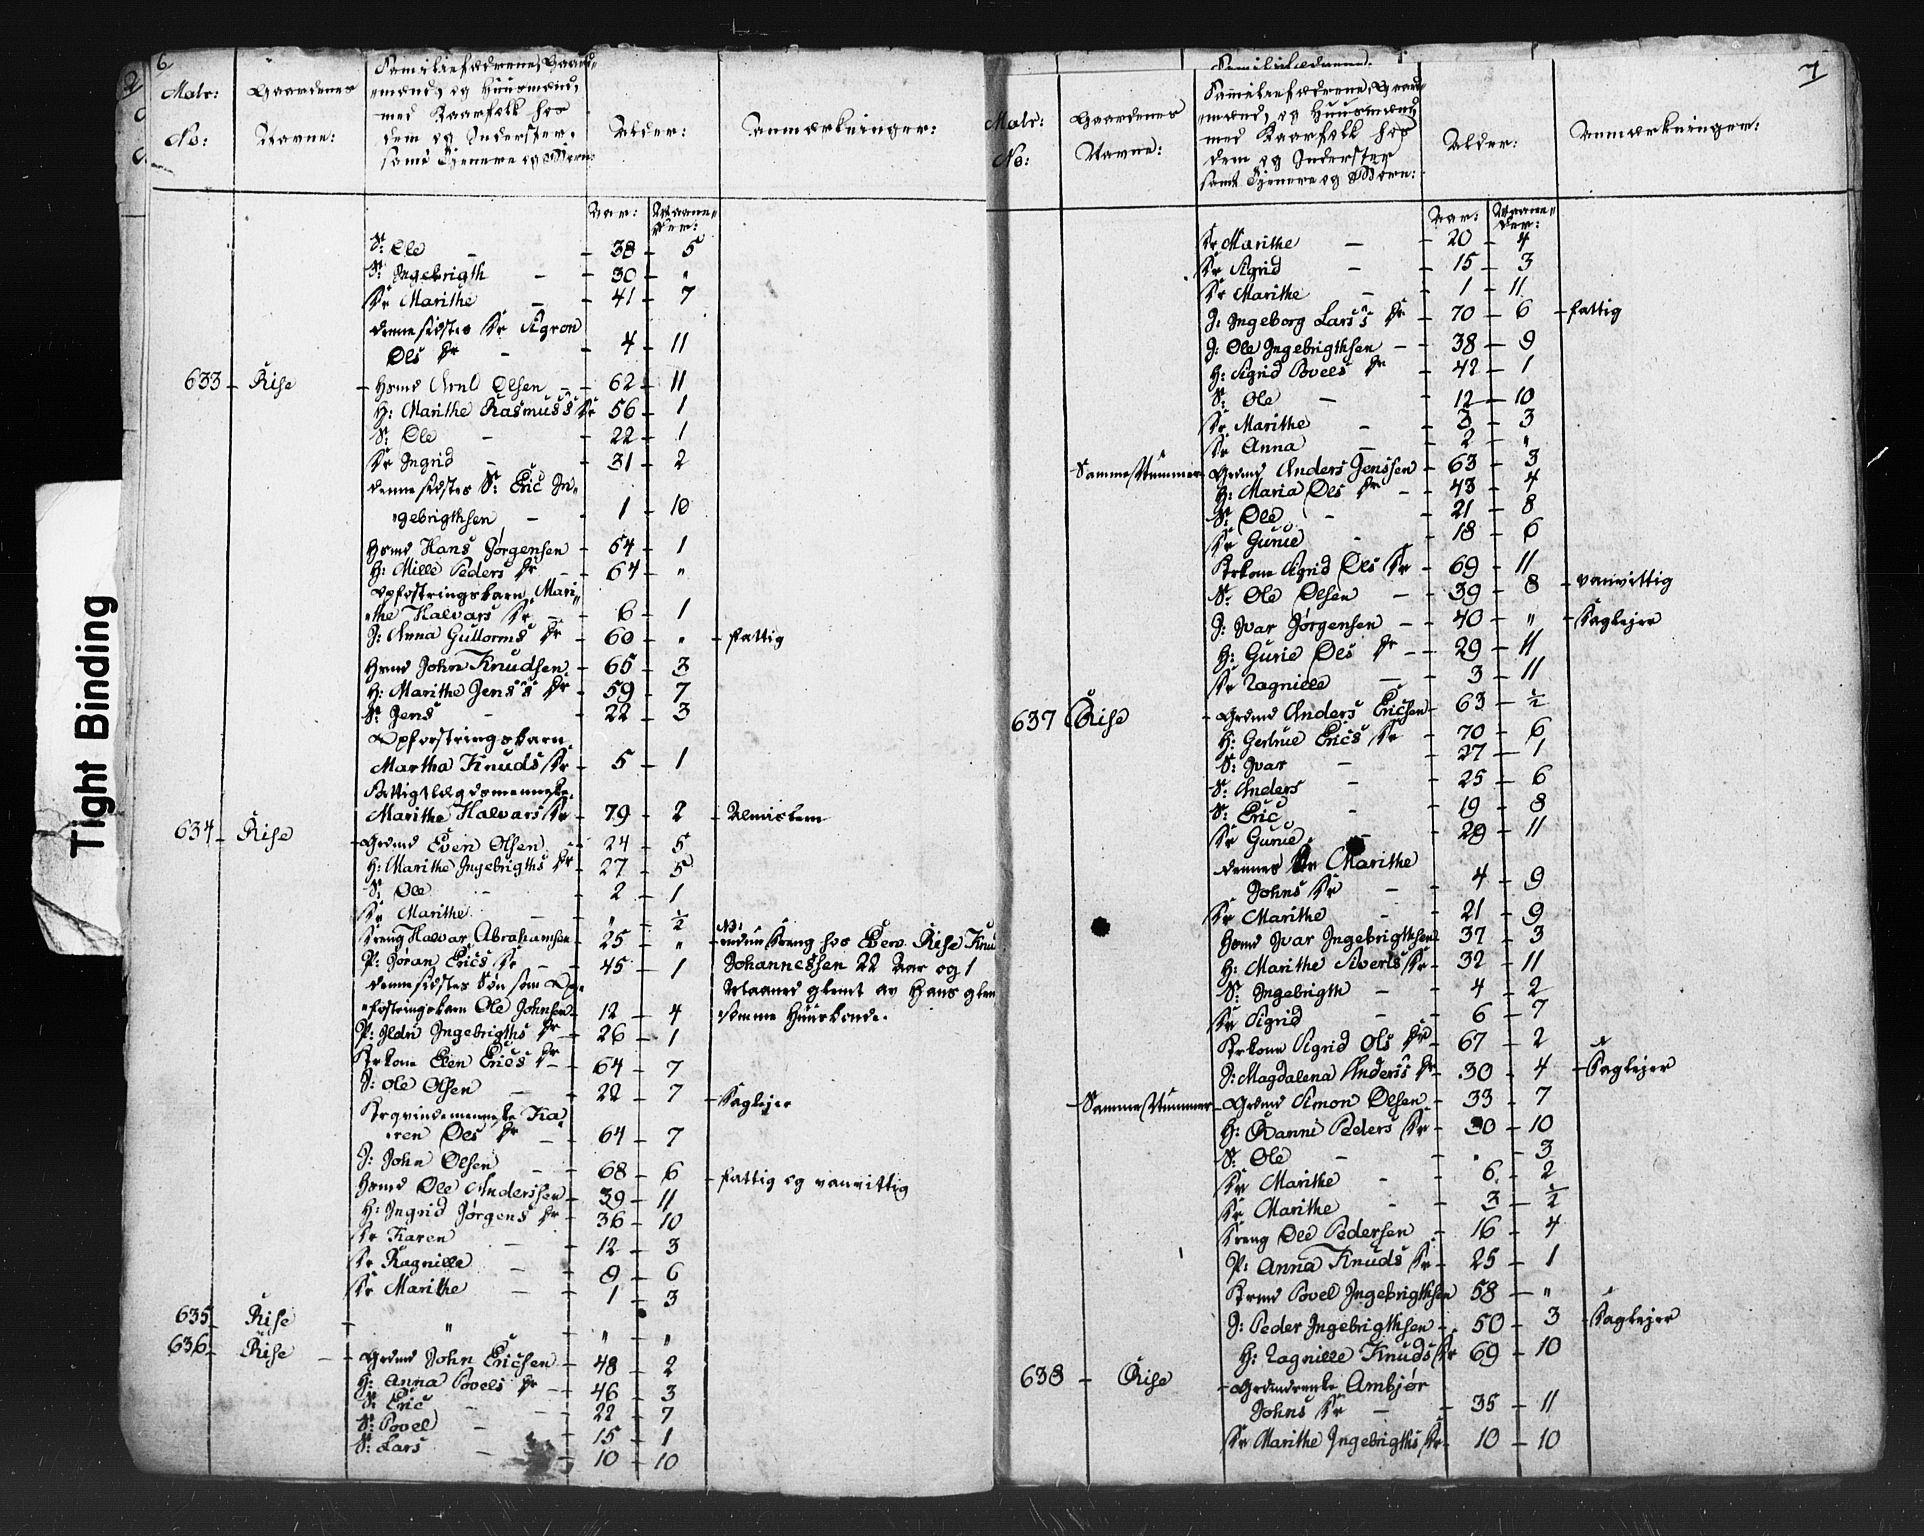 6
Matr:
No:
Gaardenes
Navne:
Familiefædrene, Gaard-
mænd, og Huusmænd,
med Kaarfolk hos
dem og Inderster,
samt Tjenere og Børn:
Alder:
Anmærkninger:
Aar: Maane-
der:
S: Ole - 38 - 5
S: Ingebrigth - 30 - "
Dr Marithe - 41 - 7
denne sidstes Dr Sigron
Ols Dr - 4 - 11
633 - Rise - Hsmd Arnt Olsen - 62 - 11
H: Marithe Rasmuss Dr 56 - 1
S: Ole - 22 - 1
Dr Ingrid - 31 - 2
denne sidstes S: Eric In-
gebrigthsen - 1 - 10
Hsmd Hans Jørgensen - 54 - 1
H: Mille Peders Dr - 64 - "
Opfostringsbarn Mari-
the Halvars Dr - 6 - 1
I: Anna Guttorms Dr - 60 - " - fattig
Hsmd John Knudsen - 65 - 3
H: Marithe Jens's Dr - 59 - 7
S: Jens - 22 - 3
Opfostringsbarn
Martha Knuds Dr - 5 - 1
Fattiglægdsmenneske
Marithe Halvars Dr - 79 - 2 - Almislem
634 - Rise - Grdmd Even Olsen - 24 - 5
H: Marithe Ingebrigths Dr - 27 - 5
S: Ole - 2 - 1
Dr Marithe - " - ½
Dreng Halvar Abrahamsen - 25 - "
NB:
endnu Dreng hos Even Rise Knud
P: Jøran Erics Dr - 45 - 1
Johannessen 22 Aar og 1
denne sidstes Søn som Op-
Maaned glemt av Hans glem
fostringsbarn Ole Johnsen - 12 - 4
somme Huusbonde.
P: Ildri Ingebrigths Dr - 26 - 1
Krkone Elen Erics Dr - 64 - 7
S: Ole Olsen - 22 - 7 - Daglejer
Krqvindemenneske Ka-
ren Ols Dr - 64 - 7
I: John Olsen - 68 - 6 - fattig og vanvittig
Hsmd Ole Anderssen - 39 - 11
H: Ingrid Jørgens Dr - 36 - 10
Dr Karen - 12 - 3
Dr Ragnille - 9 - 6
Dr Marithe - 1 - 3
635 - Rise - " - " - "
636 - Rise - Grdmd John Ericsen - 48 - 2
H: Anna Povels Dr - 46 - 3
S: Eric - 22 - 7
S: Povel - 15 - 1
S: Lars - 10 - 10
7
Matr:
No:
Gaardenes
Navne:
Familiefædrene.
Familiefædrene, Gaard-
mænd, og Huusmænd
med Kaarfolk hos
dem og Inderster
samt Tjenere og Børn:
Alder:
Anmærkninger:
Aar: Maane-
der:
Dr Marithe - 20 - 4
Dr Sigrid - 15 - 3
Dr Marithe - 1 - 11
I: Ingeborg Lars's Dr - 70 - 6 - fattig
I: Ole Ingebrigthsen - 38 - 9
H: Sigrid Povels Dr - 42 - 1
S: Ole - 12 - 10
Dr Marithe - 3 - 3
Dr Anna - 2 - "
Samme Nummer - Grdmd Anders Jenssen - 63 - 3
H: Maria Ols Dr - 43 - 4
S: Ole - 21 - 8
Dr Gurie - 18 - 6
Krkone Sigrid Ols Dr - 69 - 11
S: Ole Olsen - 39 - 8 - vanvittig
I: Ivar Jørgensen - 40 - " - Daglejer
H: Gurie Ols Dr - 29 - 11
Dr Ragnille - 3 - 11
637 Rise - Grdmd Anders Ericsen - 63 - ½
H: Gertrue Erics Dr - 70 - 6
S: Ivar - 27 - 1
S: Anders - 25 - 6
S: Eric - 19 - 8
Dr Gurie - 29 - 11
dennes Dr Marithe
Johns Dr - 4 - 9
Dr Marithe - 21 - 9
Hsmd Ivar Ingebrigthsen - 37 - 3
H: Marithe Siverts Dr - 32 - 11
S: Ingebrigth - 4 - 2
Dr Sigrid - 6 - 7
Krkone Sigrid Ols Dr - 67 - 2
I: Magdalena Anders Dr - 30 - 4 - Daglejer
Samme Nummer - Grdmd Simon Olsen - 33 - 7
H: Ranni Peders Dr - 30 - 10
S: Ole - . - 3
Dr Marithe - 6 - 2
Dr Marithe - 3 - ½
Dreng Ole Pedersen - 16 - 4
P: Anna Knuds Dr - 25 - 1
Krmd Povel Ingebrigthsen 58 - "
I: Peder Ingebrigthsen - 50 - 3 - Daglejer
H: Ragnille Knuds Dr 69 - 10
638 - Rise - Grdmdenke Ambjør
Johns Dr - 35 - 11
Dr Marithe Ingebrigths Dr - 10 - 10
Tight Binding